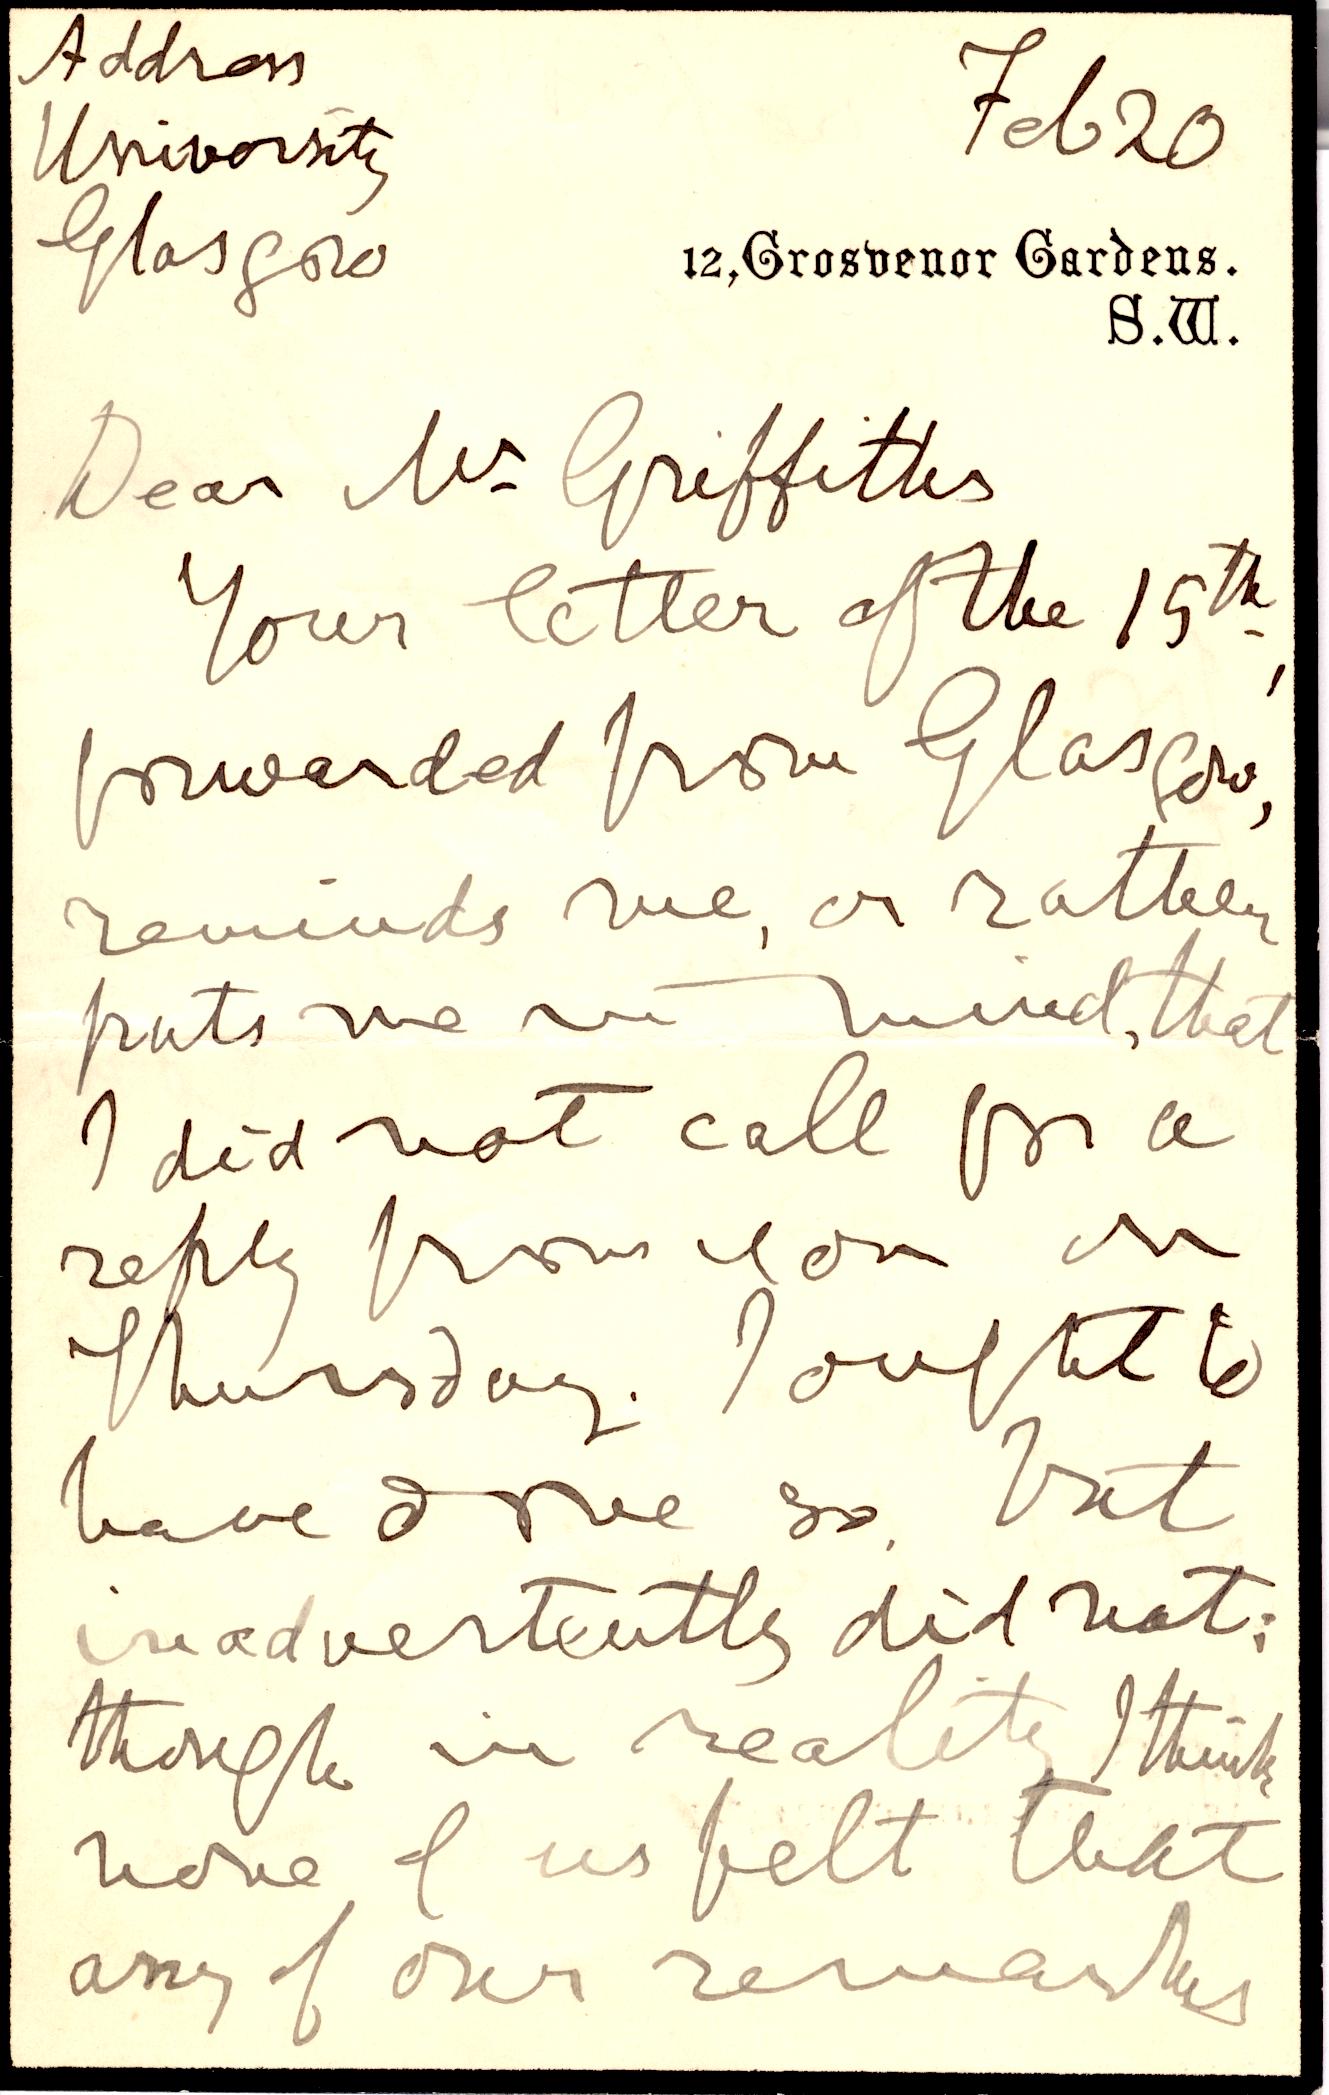 Address
University
Glasgow
Feb 20
12, Grosvenor Gardens.
S.W.
Dear Mr Griffiths
Your letter of the 15th,
forwarded from Glasgow,
reminds me, or rather
puts me in mind, that
I did not call for a
reply from you on
Thursday. I ought to
have done so, but
inadvertently did not;
though in reality I think
none of us felt that
any of our remarks